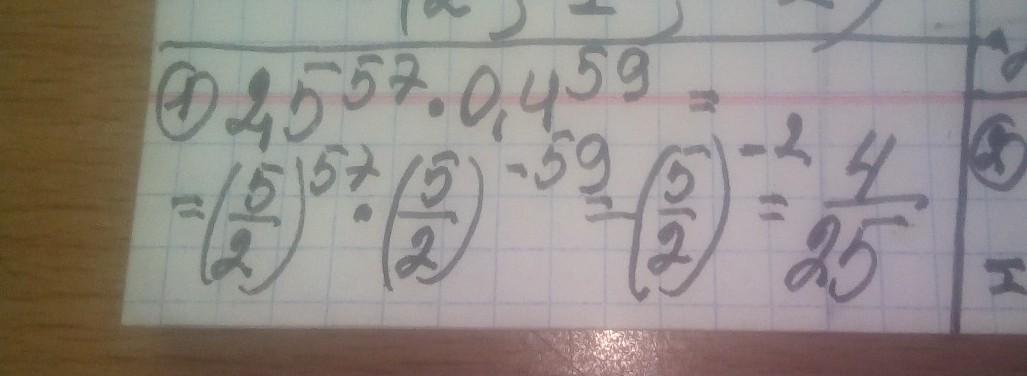 ① 2,5^57 · 0,4^59 =
= (5/2)^57 · (5/2)^-59 = (5/2)^-2 = 4/25